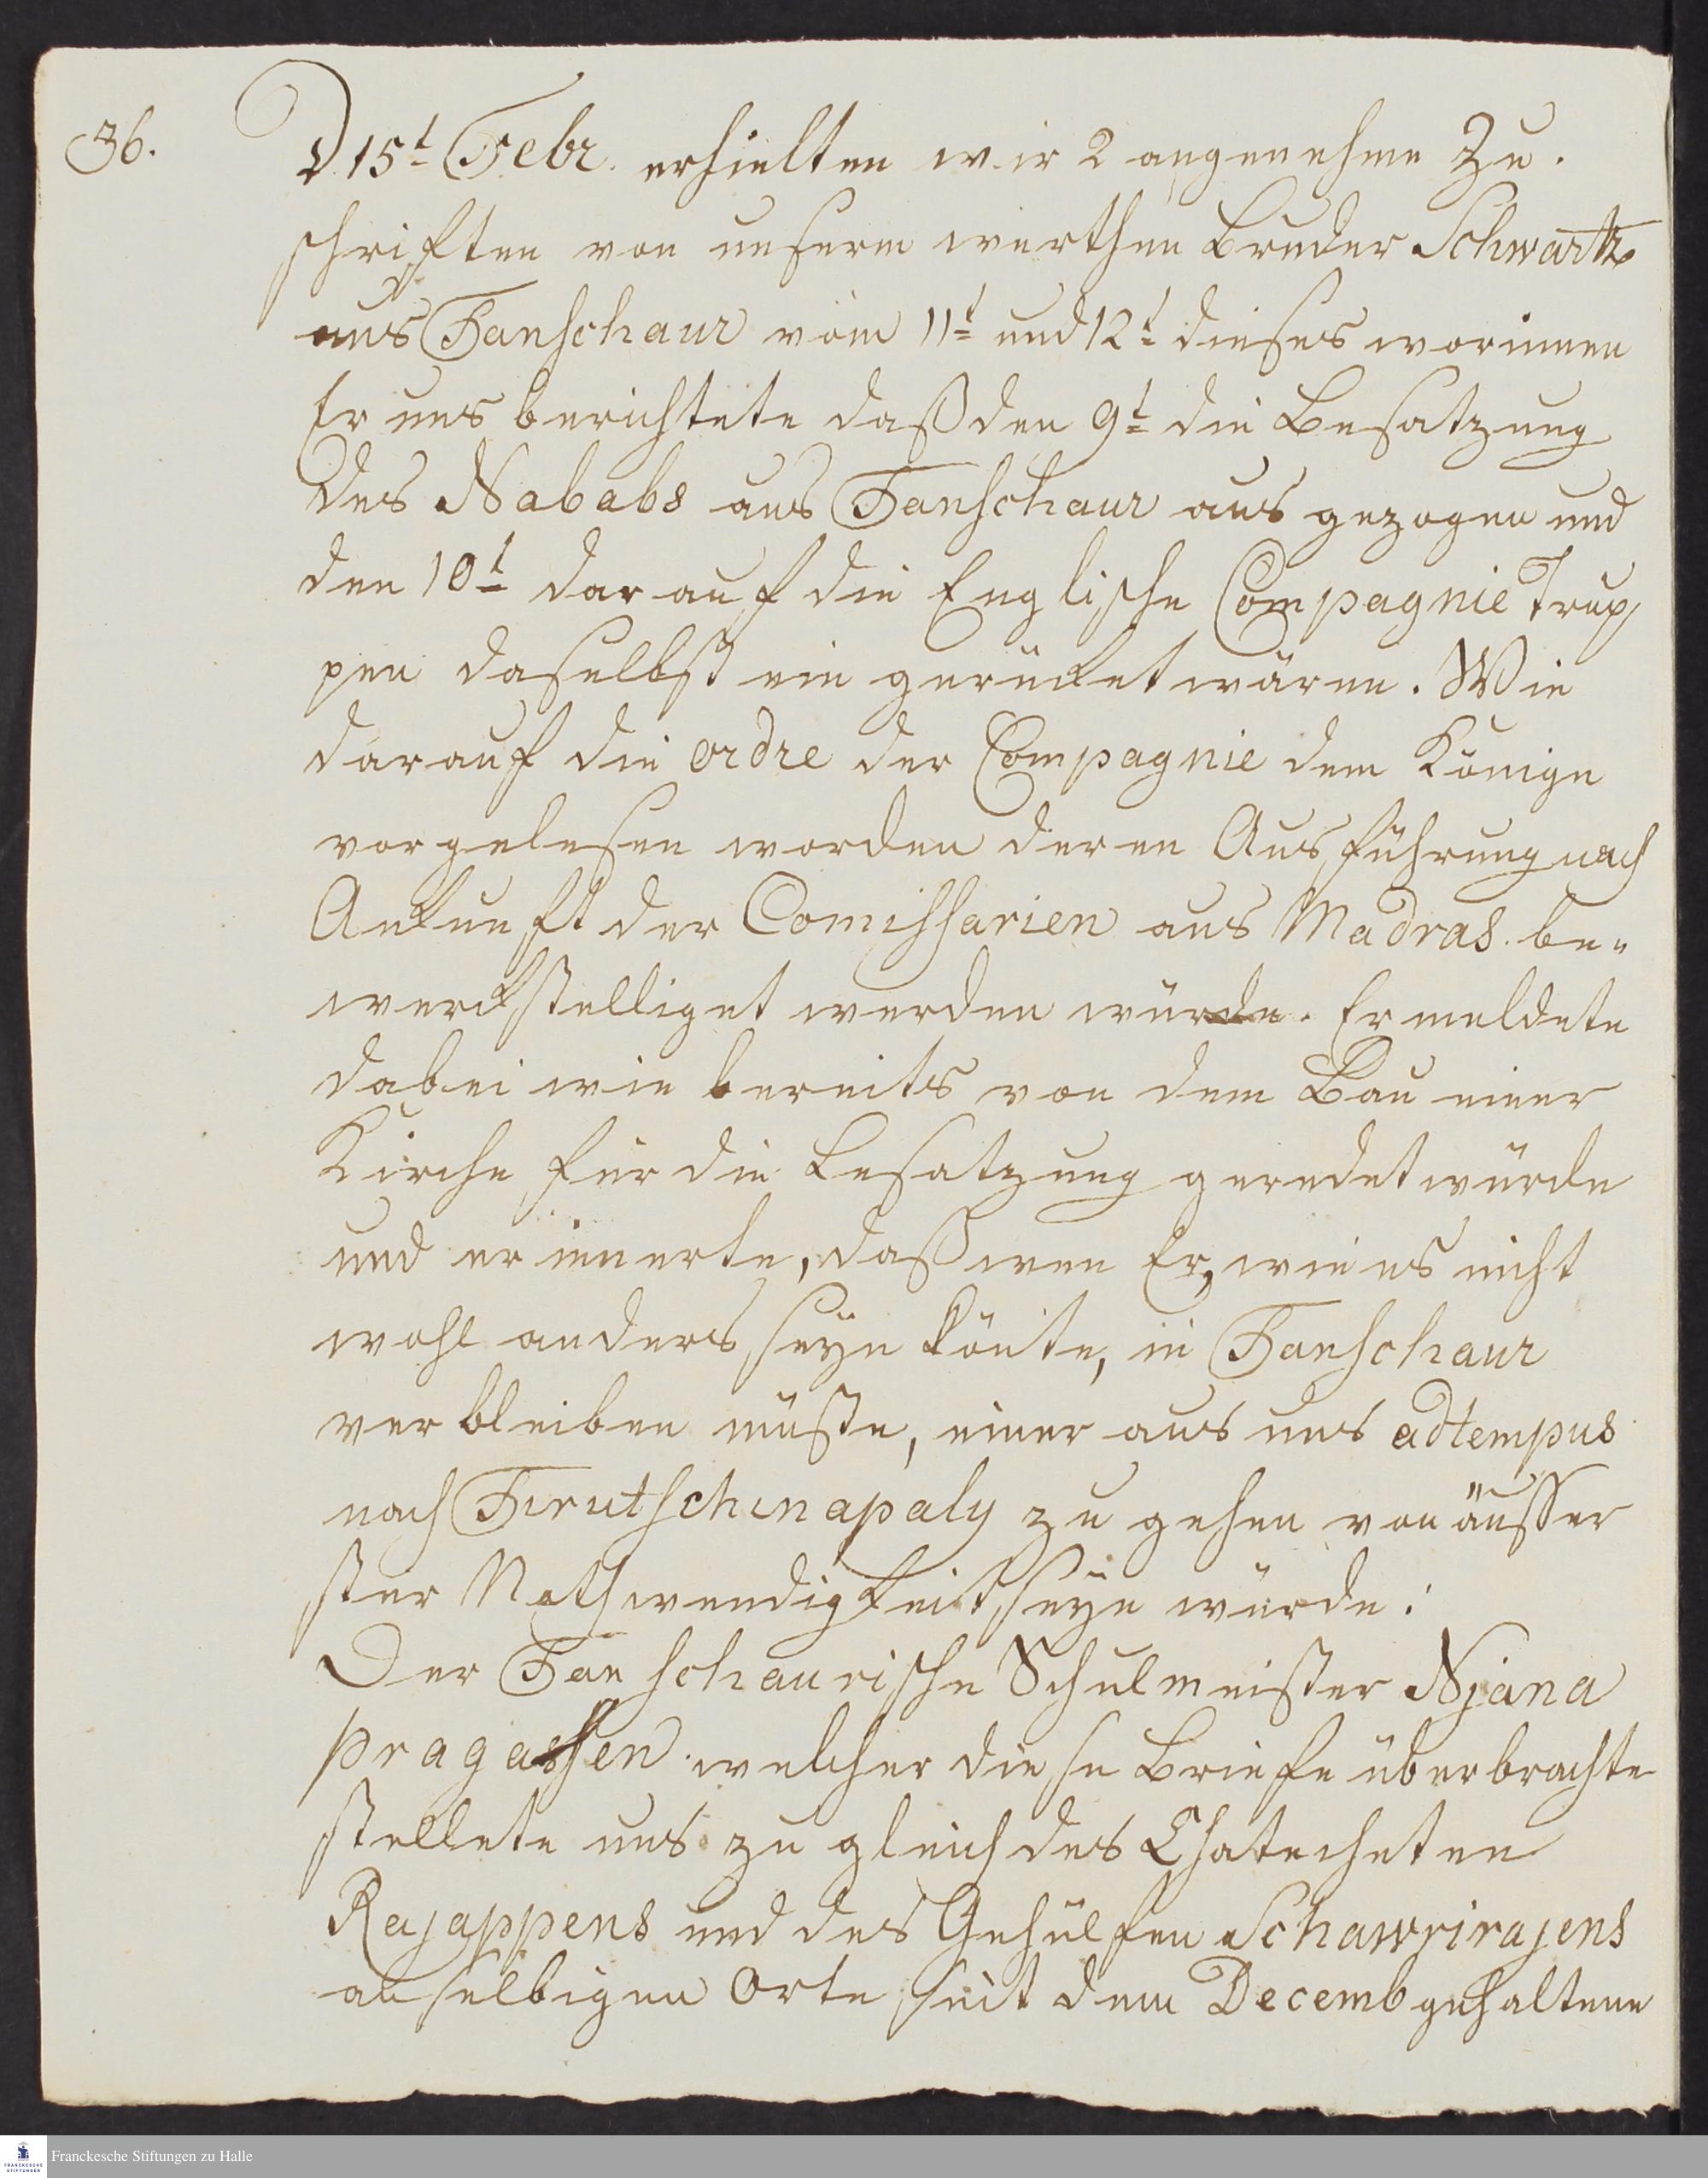 36.
D. 15t. Febr. erhielten wir 2 angenehme Zu.
schriften von unserm werthen Bruder Schwartz
aus Tanschaur vom 11t. und 12t. dieses worinnen
Er uns berichtete daß den 9t. die Besatzung
des Nababs aus Tanschaur aus gezogen und
den 10t. darauf die Englische Compagnie Trup
pen daselbst ein gerücket wären. Wie
darauf die ordre der Compagnie dem Könige
vorgelesen worden deren Ausführung nach
Ankunft der Comissarien aus Madras. be-
werckstelliget werden würde. Er meldete
dabei wie bereits von dem Bau einer
Kirche für die Besatzung geredet würde
und erinnerte, daß wen Er, wie es nicht
wohl anders seyn könte, in Tanschaur
verbleiben müste, einer aus uns ad tempus
nach Tirutschinapaly zu gehen von äusser
ster Nothwendigkeit seyn würde:
Der Tanschaurische Schulmeister Njana
pragasen welcher diese Briefe überbrachte
stellete uns zu gleich des Chatecheten
Rajappens und des Gehülfen Schawrirajens
an selbigen Orte seit dem Decemb gehaltene
Franckesche Stiftungen zu Halle
FRANCKESCHE
STIFTUNGEN